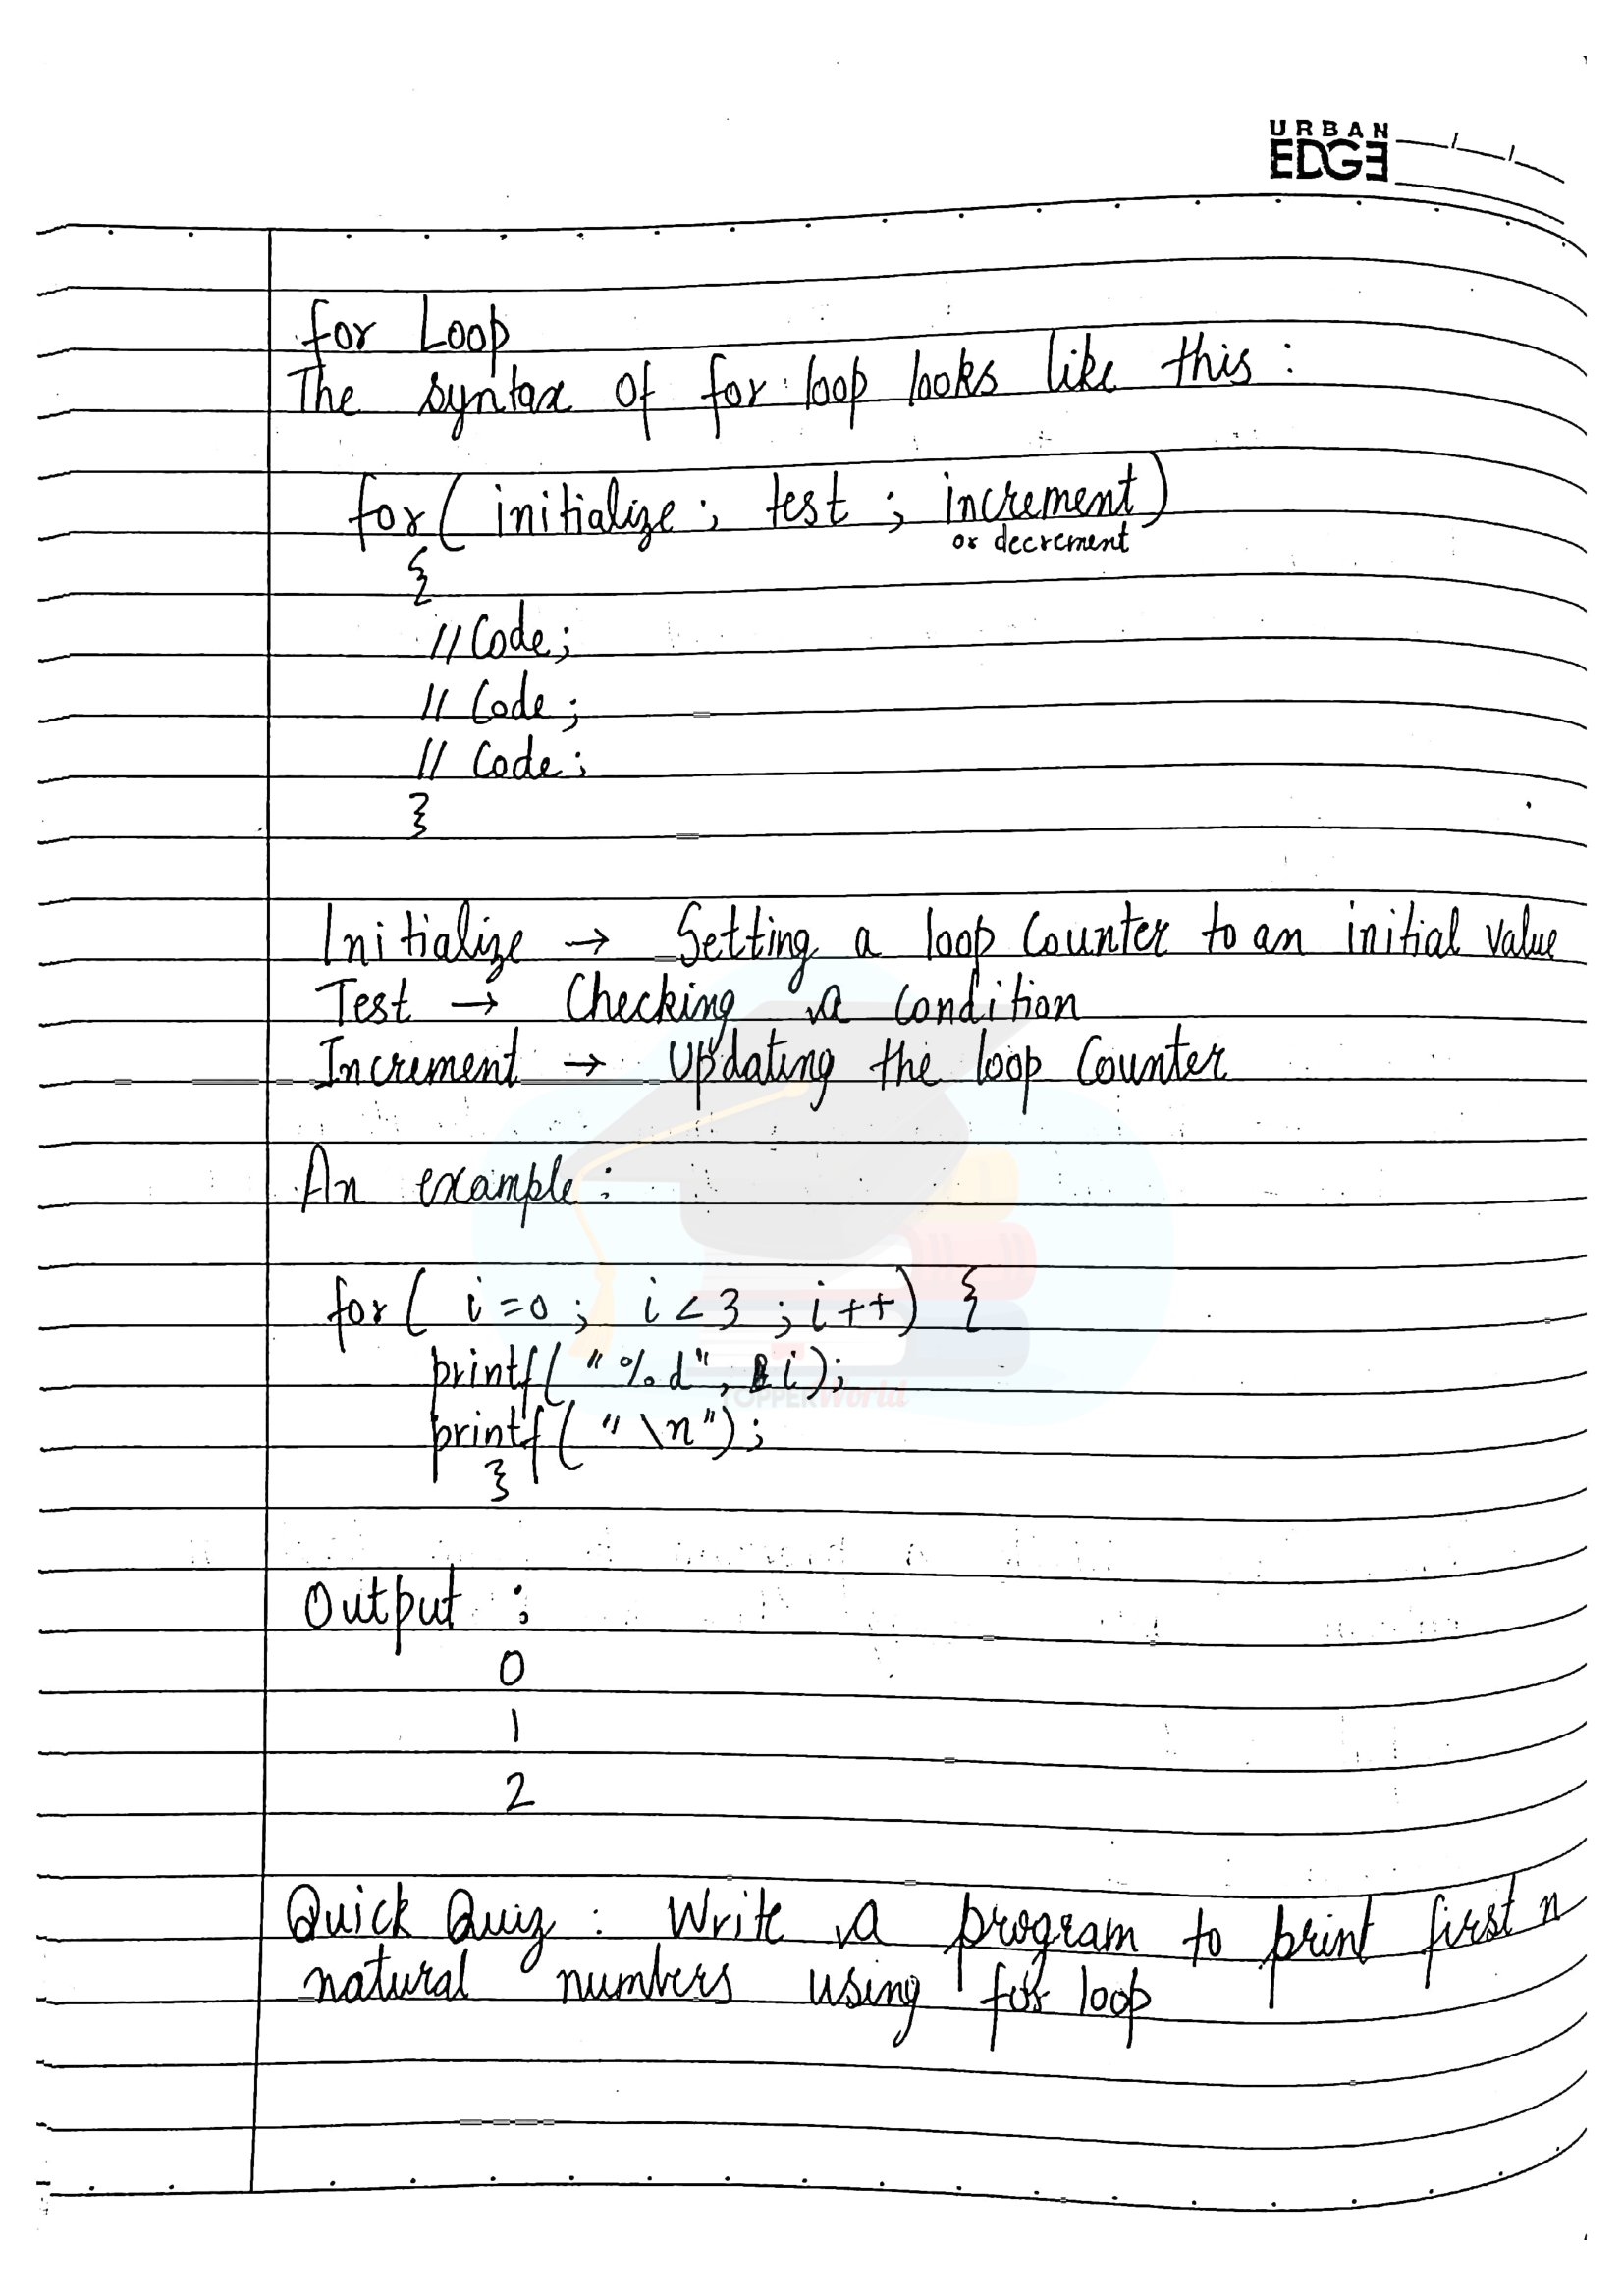 URBAN
EDGE
for Loop
The syntax of for loop looks like this :
for( initialize ; test ; increment)
or decrement
{
// Code;
// Code;
// Code;
}
Initialize → Setting a loop Counter to an initial value
Test → Checking a condition
Increment → Updating the loop Counter
An example :
for( i=0 ; i<3 ; i++) {
printf( "%d", i);
printf( "\n");
}
TOPPERWorld
Output :
0
1
2
Quick Quiz : Write a program to print first n
natural numbers using for loop